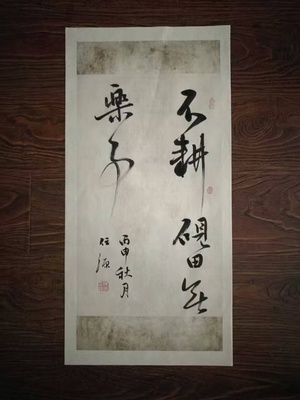 不耕硯田无
樂事
丙申秋月